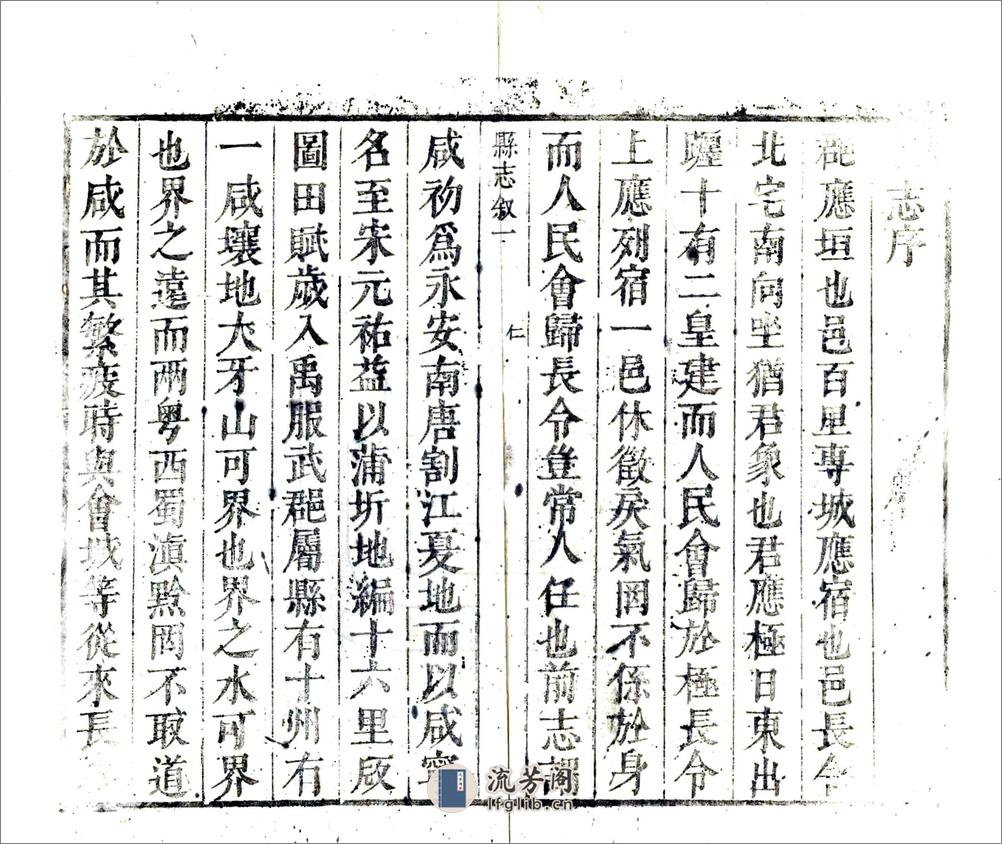 志序
郡應垣也邑百里專城應宿也邑長令
北宅南向坐猶君象也君應極日東出
躔十有二皇建而人民會歸於極長令
上應列宿一邑休徵戾氣罔不係於身
而人民會歸長令豈常人任也前志謂
縣志叙一
仁
咸初爲永安南唐割江夏地而以咸寧
名至宋元祐益以蒲圻地編十六里版
圖田賦歲入禹服武郡屬縣有十州有
一咸壤地犬牙山可界也界之水可界
也界之遠而兩粤西蜀滇黔罔不取道
於咸而其繁疲時與會城等從來長
流芳阁
lfglib.cn